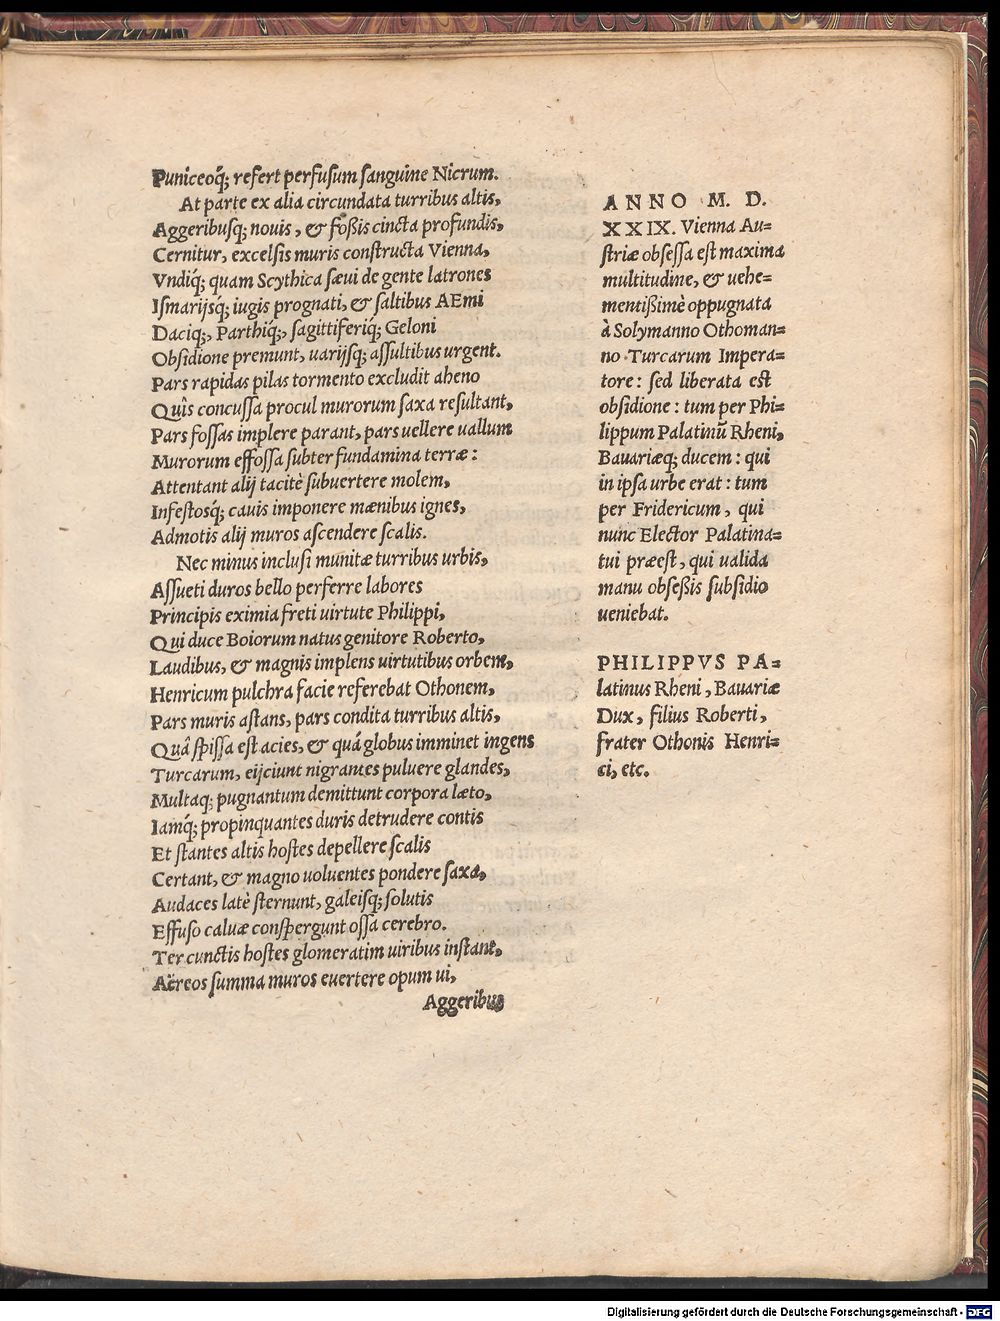 Puniceoq́; refert perfusum sanguine Nicrum.
At parte ex alia circundata turribus altis,
Aggeribusq; nouis, & foßis cincta profundis,
Cernitur, excelsis muris constructa Vienna,
Vndiq́; quam Scythica sæui de gente latrones
Ismarijsq́; iugis prognati, & saltibus AEmi
Daciq́;, Parthiq́;, sagittiferiq́; Geloni
Obsidione premunt, uarijsq; assultibus urgent.
Pars rapidas pilas tormento excludit aheno
Quîs concussa procul murorum saxa resultant,
Pars fossas implere parant, pars uellere uallum
Murorum effossa subter fundamina terræ:
Attentant alij tacitè subuertere molem,
Infestosq́; cauis imponere mænibus ignes,
Admotis alij muros ascendere scalis.
Nec minus inclusi munitæ turribus urbis,
Assueti duros bello perferre labores
Principis eximia freti uirtute Philippi,
Qui duce Boiorum natus genitore Roberto,
Laudibus, & magnis implens uirtutibus orbem,
Henricum pulchra facie referebat Othonem,
Pars muris astans, pars condita turribus altis,
Quâ spissa est acies, & quá globus imminet ingens
Turcarum, eijciunt nigrantes puluere glandes,
Multaq; pugnantum demittunt corpora læto,
Iamq́; propinquantes duris detrudere contis
Et stantes altis hostes depellere scalis
Certant, & magno uoluentes pondere saxa,
Audaces latè sternunt, galeisq; solutis
Effuso caluæ conspergunt ossa cerebro.
Ter cunctis hostes glomeratim uiribus instant,
Aëreos summa muros euertere opum ui,
Aggeribus
ANNO M. D.
XXIX. Vienna Au=
striæ obsessa est maxima
multitudine, & uehe=
mentißimè oppugnata
à Solymanno Othoman=
no Turcarum Impera=
tore: sed liberata est
obsidione: tum per Phi=
lippum Palatinū Rheni,
Bauariæq; ducem: qui
in ipsa urbe erat: tum
per Fridericum, qui
nunc Elector Palatina=
tui præest, qui ualida
manu obseßis subsidio
ueniebat.
PHILIPPVS PA=
latinus Rheni, Bauariæ
Dux, filius Roberti,
frater Othonis Henri=
ci, etc.
Digitalisierung gefördert durch die Deutsche Forschungsgemeinschaft - DFG